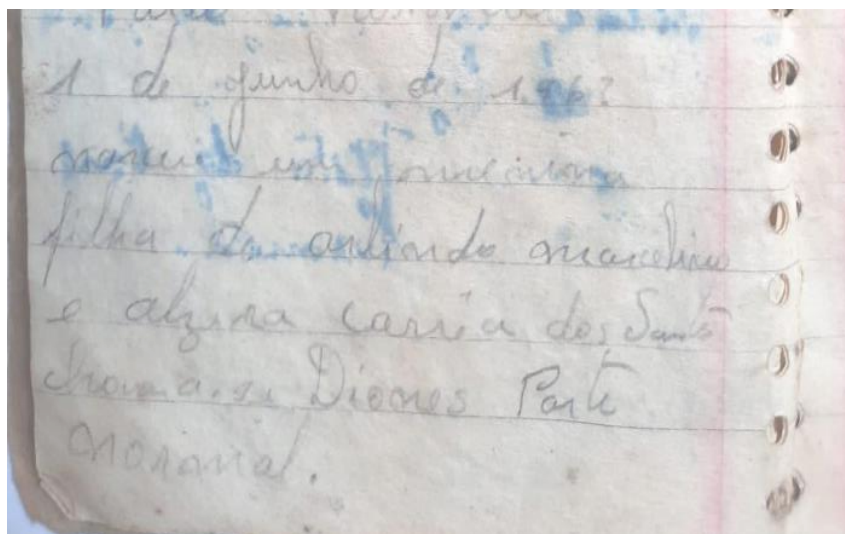 1 de junho de 1.967
nasceu um menina
filha de arlindo marcelino
e alzira caria dos Santo
Diones Parte
normal.